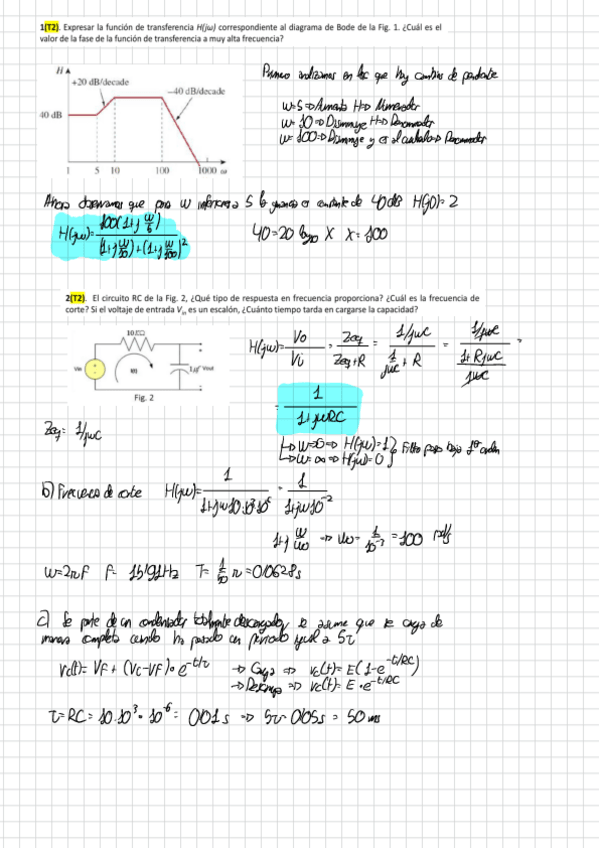 1(T2). Expresar la función de transferencia H(jω) correspondiente al diagrama de Bode de la Fig. 1. ¿Cuál es el
valor de la fase de la función de transferencia a muy alta frecuencia?
H
+20 dB/decade
−40 dB/decade
40 dB
1 5 10 100 1000 ω
Primero analizamos en los que hay cambios de pendiente
w=5 => Aumenta H=> Numerador
w=10 => Disminuye H=> Denominador
w=100=> Disminuye y es al cuadrado=> Denominador
Ahora observamos que para w inferiores a 5 la ganancia es constante de 40dB H(j0)=2
H(jw)= 100(1+j w/5) / (1+j w/10)+(1+j w/100)²
40=20 log10 X X=100
2(T2). El circuito RC de la Fig. 2, ¿Qué tipo de respuesta en frecuencia proporciona? ¿Cuál es la frecuencia de
corte? Si el voltaje de entrada Vin es un escalón, ¿Cuánto tiempo tarda en cargarse la capacidad?
10 KΩ
Vin
1 µF Vout
Fig. 2
H(jw)= Vo/Vi = Zeq/(Zeq+R) = (1/jwC)/(1/jwC + R) = (1/jwC)/((1+RjwC)/jwC) =
= 1/(1+jwRC)
Zeq= 1/jwC
w=0=> H(jw)=1
w=∞ => H(jw)=0
Filtro paso bajo 1er orden
b) Frecuencia de corte H(jw)= 1/(1+jw10·10³·10⁻⁶) = 1/(1+jw10⁻²)
1+j w/wo => wo= 1/10⁻² =100 rad/s
w=2πf f= 15'91Hz T= 1/50 π =0'0628s
c) Se parte de un condensador totalmente descargado, se asume que se carga de
manera completa cuando ha pasado un periodo igual a 5τ
Vc(t)= VF + (Vc-VF)·e^-t/τ -> Carga => Vc(t)=E(1-e^-t/RC)
-> Descarga => Vc(t)= E·e^-t/RC
τ=RC= 10·10³·10⁻⁶= 0'01s => 5τ=0'05s = 50 ms